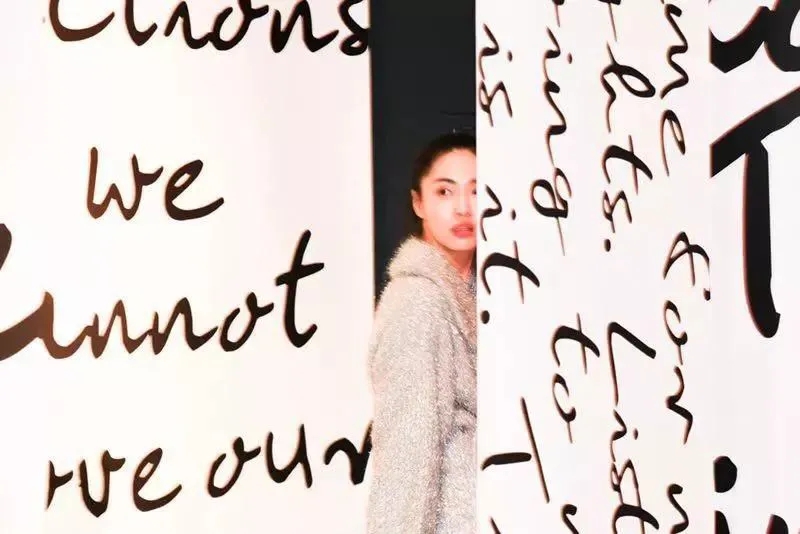 ctions
we
cannot
ve our
me for
hts. List
ing to
is it.